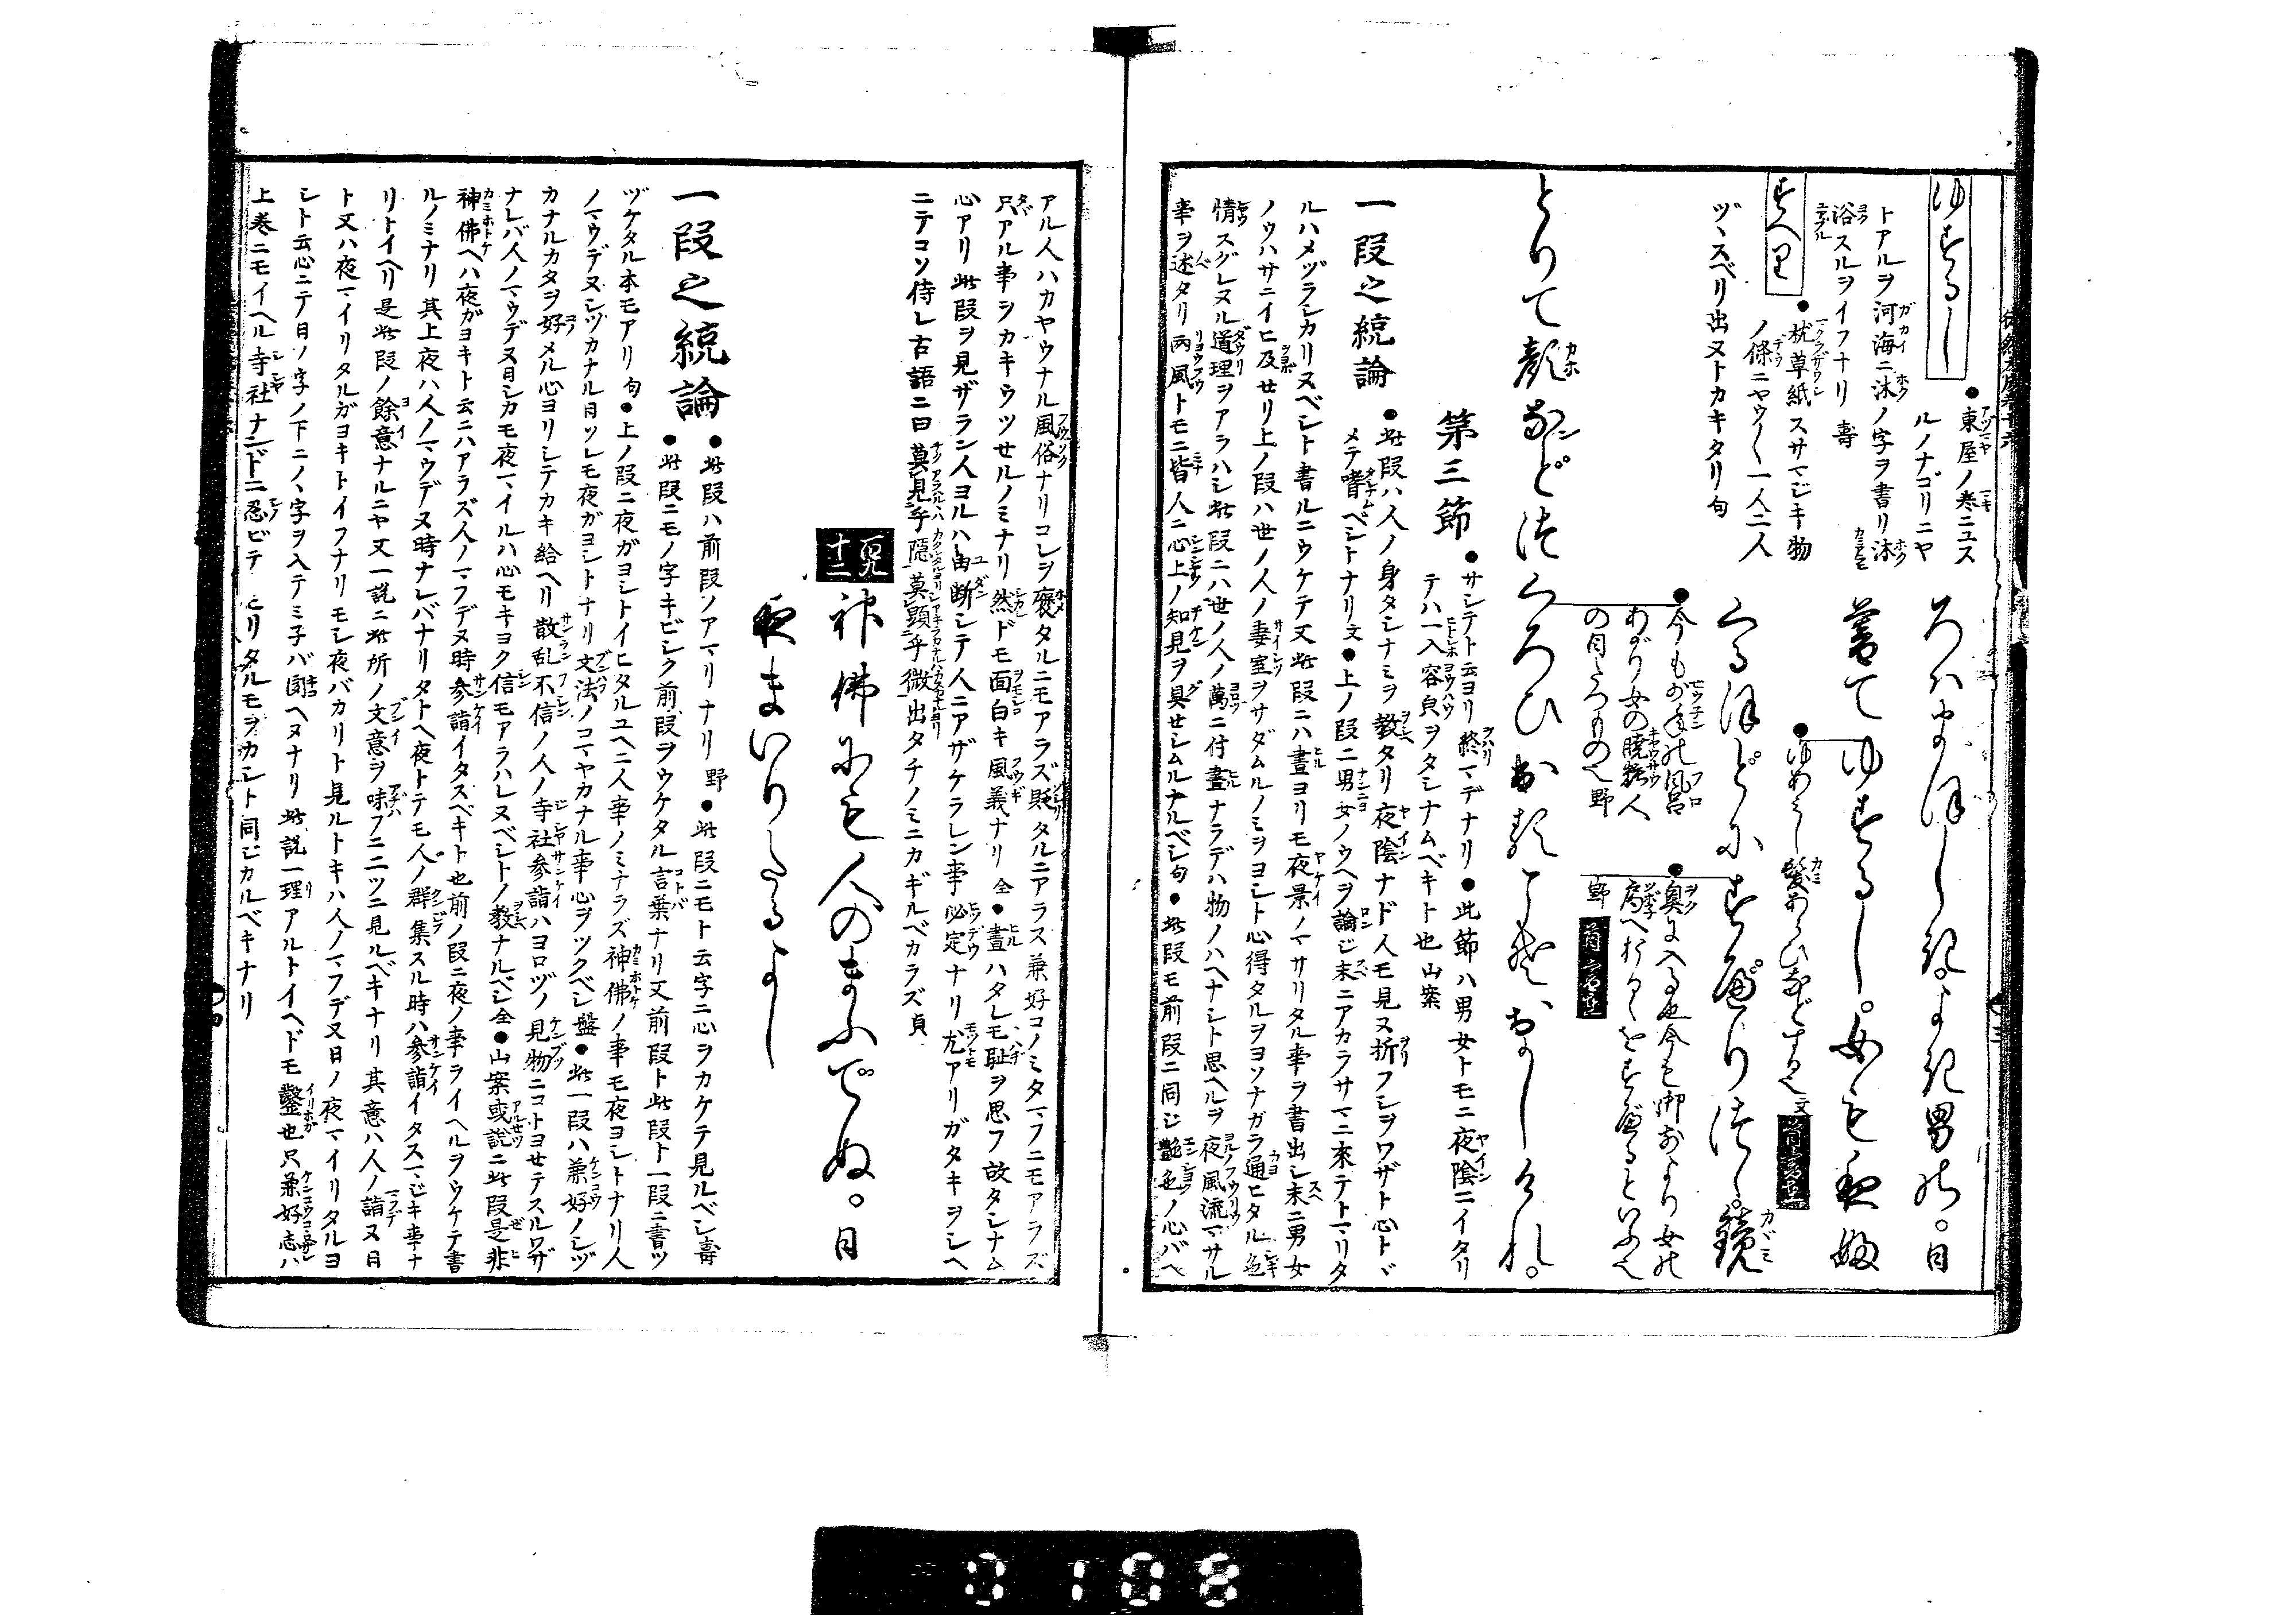 ゆするし
●東屋ノ巻ニユス
ルノナゴリニヤ
トアルヲ河海ニ沐ノ字ヲ書リ沐
浴スルヲイフナリ 壽
すべり
●枕草紙スサマジキ物
ノ條ニヤウ〱一人二人
ヅヽスベリ出ヌトカキタリ句
ろハまほしけれ。よき男の。日
暮てゆするし。女も夜ふ
くるほどに。すべりつゝ。鏡
とりて顔などつくろひ出るこそおかしけれ。
第三節
●サシテト云ヨリ終マデナリ●此節ハ男女トモニ夜陰ニイタリ
テハ一入容貞ヲタシナムベキト也 山案
一段之統論
●此段ハ人ノ身タシナミヲ教タリ夜陰ナド人モ見ヌ折フシヲワザト心トヾ
メテ嗜ベシトナリ文●上ノ段ニ男女ノウヘヲ論ジ末ニアカラサマニ來テトマリタ
ルハメヅラシカリヌベシト書ルニウケテ又此段ニハ晝ヨリモ夜景ノマサリタル事ヲ書出シ末ニ男女
ノウハサニイヒ及せリ上ノ段ハ世ノ人ノ妻室ヲサダムルノミヲヨシト心得タルヲヨソナガラ通ヒタル色
情スグレヌル道理ヲアラハシ此段ニハ世ノ人ノ萬ニ付晝ナラデハ物ノハヘナシト思ヘルヲ夜風流マサル
事ヲ述タリ兩風トモニ皆人ニ心上ノ知見ヲ具せシムルナルベシ句●此段モ前段ニ同ジ艶色ノ心バベ
アル人ハカヤウナル風俗ナリコレヲ褒タルニモアラズ貶タルニアラス兼好コノミタマフニモアラズ
只アル事ヲカキウツせルノミナリ然ドモ面白キ風義ナリ 全●晝ハタレモ耻ヲ思フ故タシナム
心アリ此段ヲ見ザラン人ヨルハ由断シテ人ニアザケラレン事必定ナリ尤アリガタキヲシヘ
ニテコソ侍レ古語ニ曰莫見乎隱莫顕乎微出タチノミニカギルベカラズ貞
百九十二
神佛にも人のまふでぬ。日
夜まいりたるよし
一段之統論
●此段ハ前段ソアマリナリ 野●此段ニモト云字ニ心ヲカケテ見ルベシ壽
●此段ニモノ字キビシク前段ヲウケタル言葉ナリ又前段ト此段ト一段ニ書ツ
ヅケタル本モアリ句●上ノ段ニ夜ガヨシトイヒタルユヘニ人事ノミナラズ神佛ノ事モ夜ヨシトナリ人
ノマウデヌシヅカナル日ソレモ夜ガヨシトナリ文法ノコマヤカナル事心ヲツクベシ盤●此一段ハ兼好ノシヅ
カナルカタヲ好メル心ヨリシテカキ給ヘリ散乱不信ノ人ノ寺社参詣ハヨロヅノ見物ニコトヨせテスルワザ
ナレバ人ノマウデヌ日シカモ夜マイルハ心モキヨク信モアラハレヌベシトノ教ナルベシ全●山案或説ニ此段是非
神佛ヘハ夜ガヨキト云ニハアラズ人ノマフデヌ時参詣イタスベキト也前ノ段ニ夜ノ事ライヘルヲウケテ書
ルノミナリ其上夜ハ人ノマウデヌ時ナレバナリタトヘ夜トテモ人ノ群集スル時ハ参詣イタスマジキ事ナ
リトイヘリ是此段ノ餘意ナルニヤ又一説ニ此所ノ文意ヲ味フニ二ツニ見ルベキナリ其意ハ人ノ詣ヌ日
ト又ハ夜マイリタルガヨキトイフナリモシ夜バカリト見ルトキハ人ノマフデヌ日ノ夜マイリタルヨ
シト云心ニテ日ノ字ノ下ニノヽ字ヲ入テミ子バ聞ヘヌナリ此説一理アルトイヘドモ鑿也只兼好志ハ
上巻ニモイヘル寺社ナンドニ忍ビテコモリタルモヲカシト同ジカルベキナリ
0108